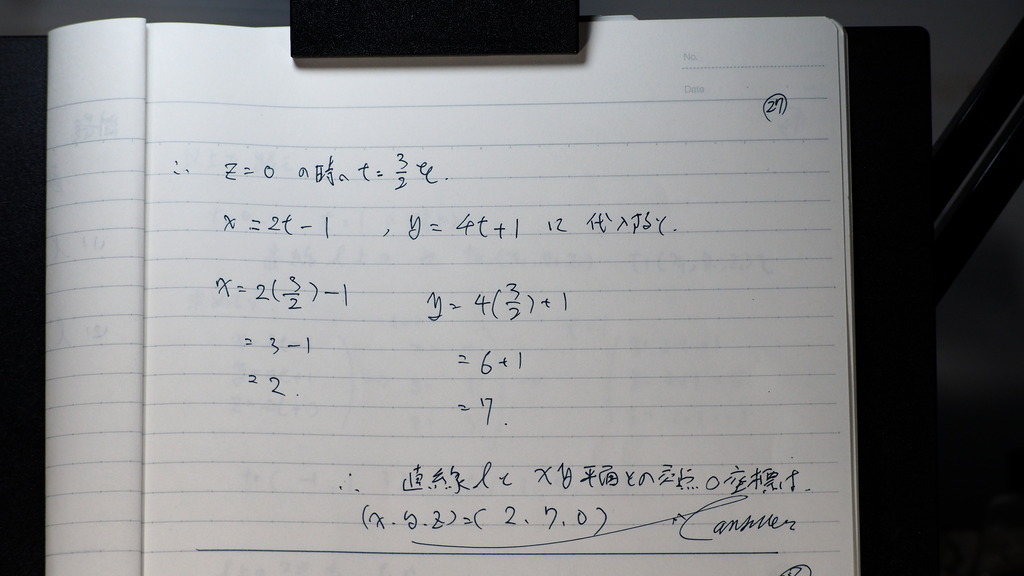 No.
Date
27
∴ z=0 の時、t=3/2 を.
x=2t-1 , y=4t+1 に 代入すると.
x=2(3/2)-1 y=4(3/2)+1
=3-1 =6+1
=2. =7.
∴ 直線lとxy平面との交点の座標は.
(x.y.z)=(2.7.0) answer